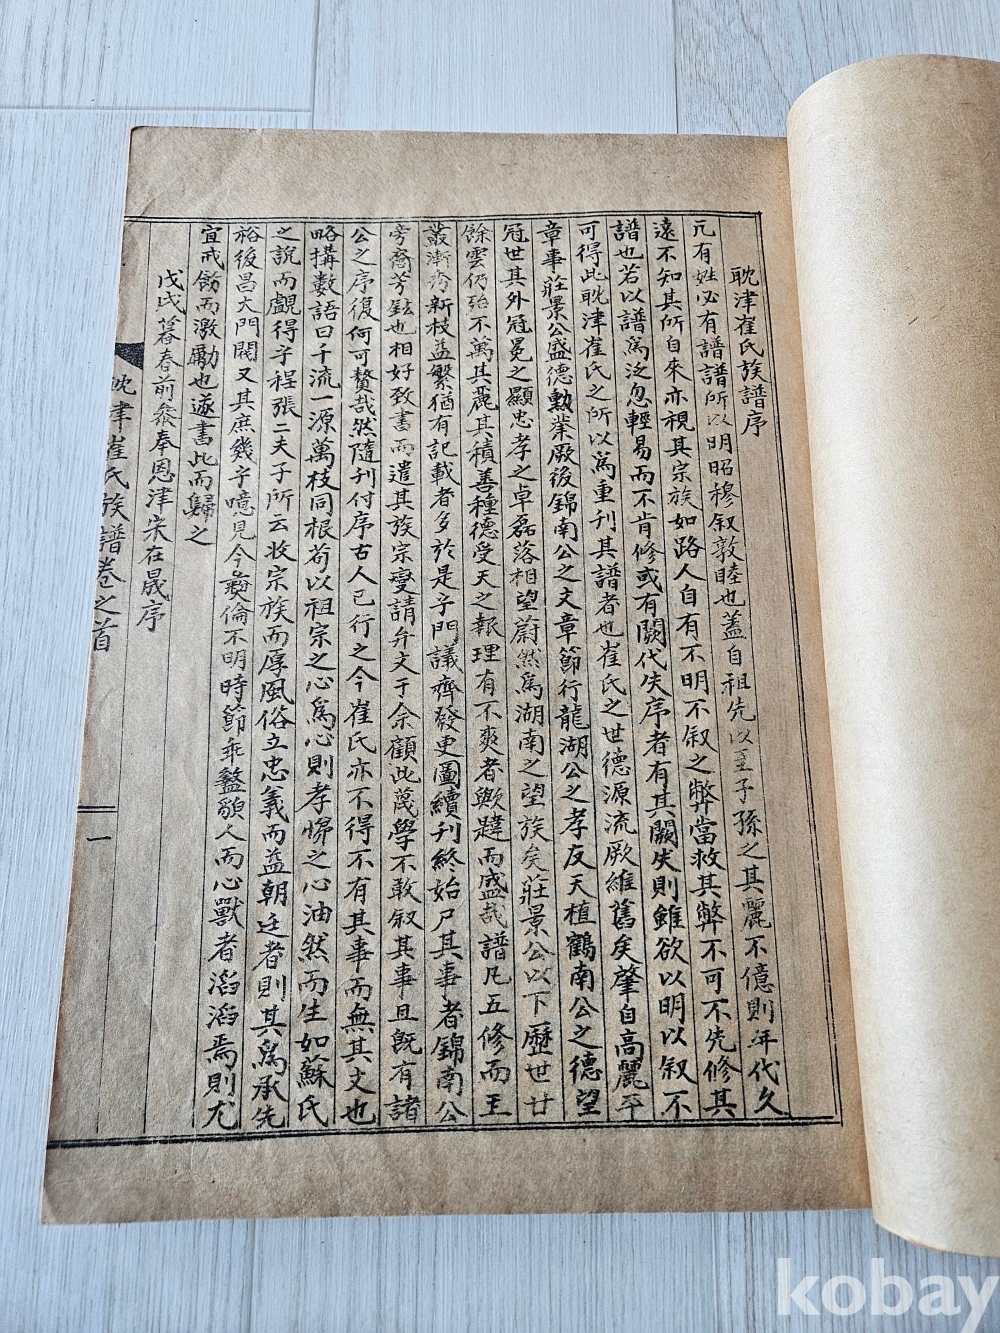 耽津崔氏族譜序
元有姓必有譜譜所以明昭穆叙敦睦也蓋自祖先以至子孫之其麗不億則年代久
遠不知其所自來亦視其宗族如路人自有不明不叙之弊當救其弊不可不先修其
譜也若以譜爲泛忽輕易而不肯修或有闕代失序者有其闕失則雖欲以明以叙不
可得此耽津崔氏之所以爲重刊其譜者也崔氏之世德源流厥維舊矣肇自高麗平
章事莊景公盛德勳業厥後錦南公之文章節行龍湖公之孝友天植鶴南公之德望
冠世其外冠冕之顯忠孝之卓磊落相望蔚然爲湖南之望族矣莊景公以下歷世廿
餘雲仍殆不萬其麗其積善種德受天之報理有不爽者歟韙而盛哉譜凡五修而王
叢漸秀新枝益繁猶有記載者多於是乎門議齊發更圖續刊終始尸其事者錦南公
旁裔芳鉉也相好致書而遣其族宗燮請弁文于余顧此蔑學不敢叙其事且旣有諸
公之序復何可贅哉然隨刊付序古人已行之今崔氏亦不得不有其事而無其文也
略搆數語曰千流一源萬枝同根苟以祖宗之心爲心則孝悌之心油然而生如蘇氏
之說而覰得乎程張二夫子所云收宗族而厚風俗立忠義而益朝廷者則其爲承先
裕後昌大門閥又其庶幾乎噫見今彝倫不明時節乖盭顙人而心獸者滔滔焉則尤
宜戒飭而激勵也遂書此而歸之
戊戌暮春前參奉恩津宋在晟序
耽津崔氏族譜卷之首
一
kobay